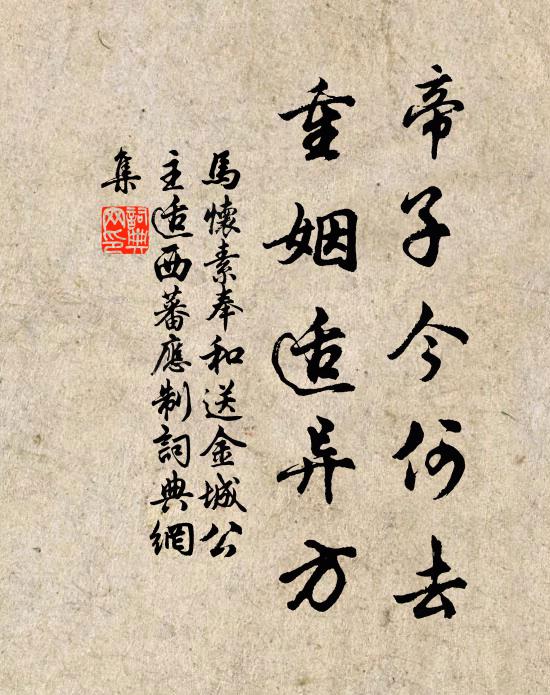 帝子今何去
重姻适异方
馬懷素奉和送金城公
主适西蕃應制詞典網
集
詞典
网印